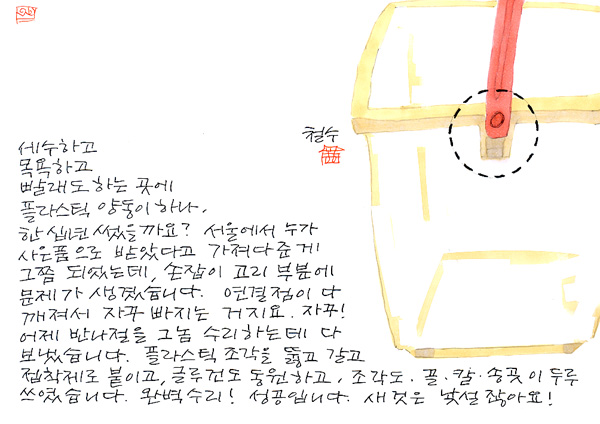 철수
세수하고
목욕하고
빨래도 하는 곳에
플라스틱 양동이 하나.
한 십년 썼을까요? 서울에서 누가
사은품으로 받았다고 가져다 준 게
그쯤 되었는데, 손잡이 고리 부분에
문제가 생겼습니다. 연결점이 다
깨져서 자꾸 빠지는 거지요. 자꾸!
어제 반나절을 그놈 수리하는데 다
보냈습니다. 플라스틱 조각을 뚫고 갈고
접착제로 붙이고, 글루건도 동원하고, 조각도·끌·칼·송곳이 두루
쓰였습니다. 완벽수리! 성공입니다. 새것은 낯설잖아요!